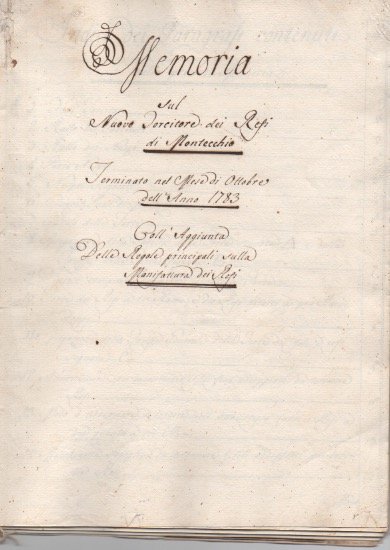 Memoria
sul
Nuovo Torcitore dei Refi
di Montecchio
Terminato nel Mese di Ottobre
dell'Anno 1783
Coll'Aggiunta
Delle Regole principali sulla
Manifattura dei Refi